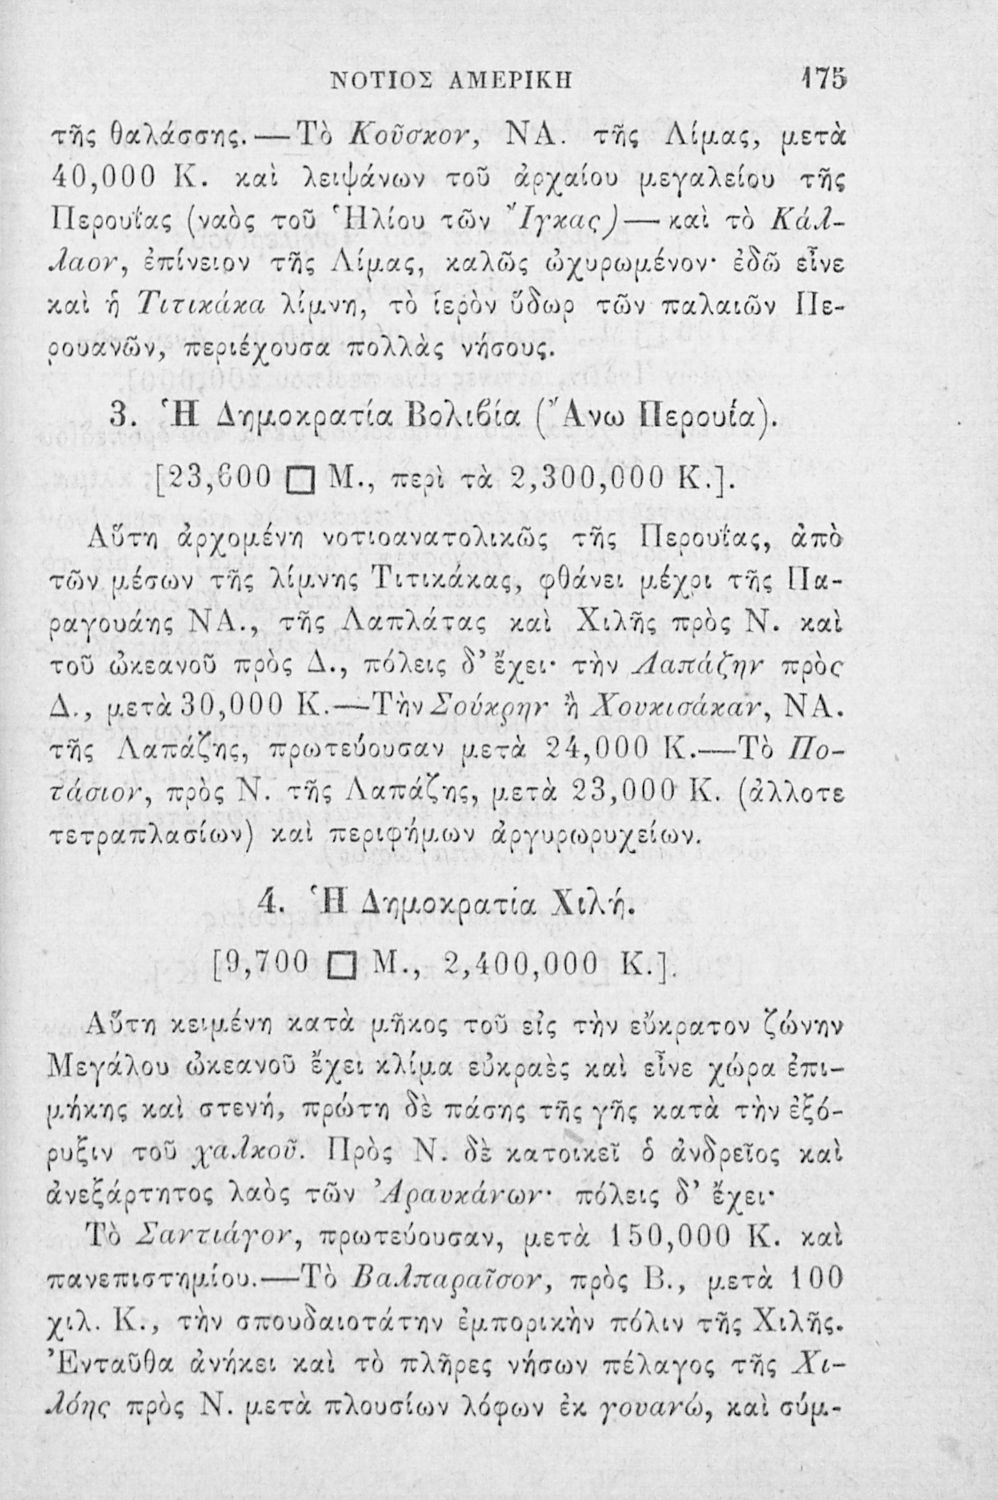 ΝΟΤΙΟΣ ΑΜΕΡΙΚΗ 175
τῆς θαλάσσης.—Τὸ Κοῦσκον, ΝΑ. τῆς Λίμας, μετὰ
40,000 Κ. καὶ λειψάνων τοῦ ἀρχαίου μεγαλείου τῆς
Περουΐας (ναὸς τοῦ Ἡλίου τῶν Ἴγκας)—καὶ τὸ Κάλ-
λαον, ἐπίνειον τῆς Λίμας, καλῶς ὠχυρωμένον· ἐδῶ εἶνε
καὶ ἡ Τιτικάκα λίμνη, τὸ ἱερὸν ὕδωρ τῶν παλαιῶν Πε-
ρουανῶν, περιέχουσα πολλὰς νήσους.
3. Ἡ Δημοκρατία Βολιβία (Ἄνω Περουία).
[23,600 □ Μ., περὶ τὰ 2,300,000 Κ.].
Αὕτη ἀρχομένη νοτιοανατολικῶς τῆς Περουΐας, ἀπὸ
τῶν μέσων τῆς λίμνης Τιτικάκας, φθάνει μέχρι τῆς Πα-
ραγουάης ΝΑ., τῆς Λαπλάτας καὶ Χιλῆς πρὸς Ν. καὶ
τοῦ ὠκεανοῦ πρὸς Δ., πόλεις δ' ἔχει· τὴν Λαπάζην πρὸς
Δ., μετὰ 30,000 Κ.—Τὴν Σούκρην ἢ Χουκισάκαν, ΝΑ.
τῆς Λαπάζης, πρωτεύουσαν μετὰ 24,000 Κ.—Τὸ Πο-
τάσιον, πρὸς Ν. τῆς Λαπάζης, μετὰ 23,000 Κ. (ἄλλοτε
τετραπλασίων) καὶ περιφήμων ἀργυρωρυχείων.
4. Ἡ Δημοκρατία Χιλή.
[9,700 □ Μ., 2,400,000 Κ.].
Αὕτη κειμένη κατὰ μῆκος τοῦ εἰς τὴν εὔκρατον ζώνην
Μεγάλου ὠκεανοῦ ἔχει κλίμα εὐκραὲς καὶ εἶνε χώρα ἐπι-
μήκης καὶ στενή, πρώτη δὲ πάσης τῆς γῆς κατὰ τὴν ἐξό-
ρυξιν τοῦ χαλκοῦ. Πρὸς Ν. δὲ κατοικεῖ ὁ ἀνδρεῖος καὶ
ἀνεξάρτητος λαὸς τῶν Ἀραυκάνων· πόλεις δ' ἔχει·
Τὸ Σαντιάγον, πρωτεύουσαν, μετὰ 150,000 Κ. καὶ
πανεπιστημίου.—Τὸ Βαλπαραῖσον, πρὸς Β., μετὰ 100
χιλ. Κ., τὴν σπουδαιοτάτην ἐμπορικὴν πόλιν τῆς Χιλῆς.
Ἐνταῦθα ἀνήκει καὶ τὸ πλῆρες νήσων πέλαγος τῆς Χι-
λόης πρὸς Ν. μετὰ πλουσίων λόφων ἐκ γουανώ, καὶ σύμ-